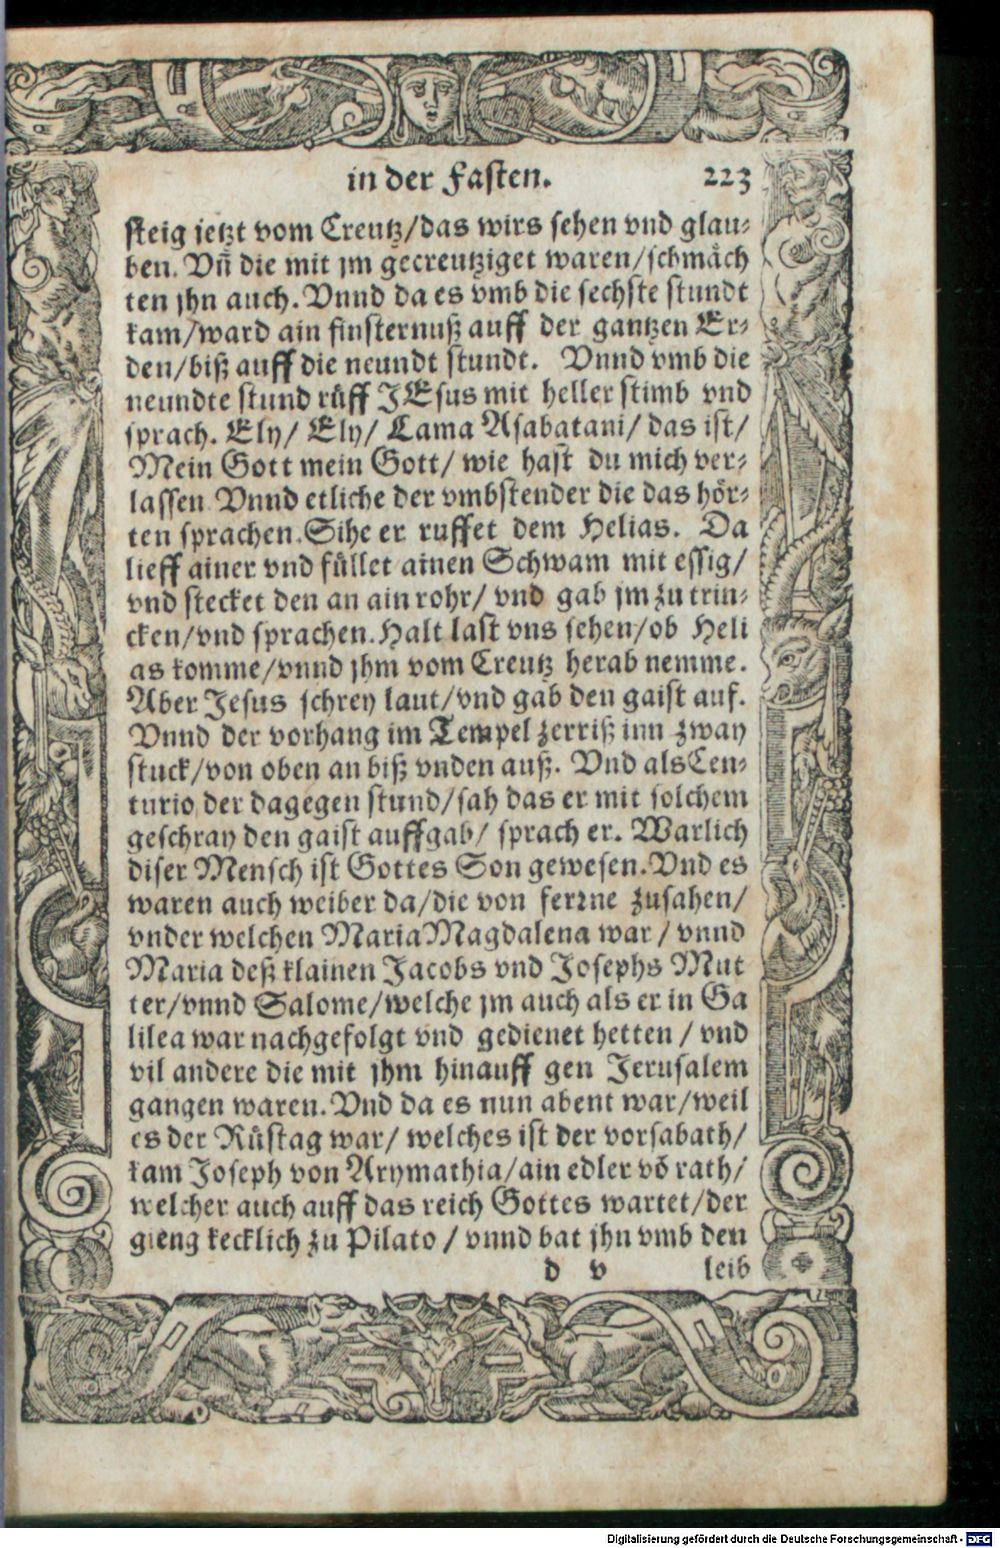 in der Fasten. 223
steig jetzt vom Creutz/das wirs sehen vnd glau-
ben. Vñ die mit jm gecreutziget waren/schmåch
ten jhn auch. Vnnd da es vmb die sechste stundt
kam/ward ain finsternuß auff der gantzen Er-
den/biß auff die neundt stundt. Vnnd vmb die
neundte stund růff JEsus mit heller stimb vnd
sprach. Ely/ Ely/ Lama Asabatani/ das ist/
Mein Gott mein Gott/ wie hast du mich ver-
lassen. Vnnd etliche der vmbstender die das hör-
ten sprachen. Sihe er ruffet dem Helias. Da
lieff ainer vnd füllet ainen Schwam mit essig/
vnd stecket den an ain rohr/ vnd gab jm zu trin-
cken/vnd sprachen. Halt last vns sehen/ob Heli
as komme/vnnd jhm vom Creutz herab nemme.
Aber Jesus schrey laut/vnd gab den gaist auf.
Vnnd der vorhang im Tempel zerriß inn zway
stuck/von oben an biß vnden auß. Vnd als Cen-
turio der dagegen stund/sah das er mit solchem
geschray den gaist auffgab/ sprach er. Warlich
diser Mensch ist Gottes Son gewesen. Vnd es
waren auch weiber da/die von ferꝛne zusahen/
vnder welchen Maria Magdalena war/ vnnd
Maria deß klainen Jacobs vnd Josephs Mut
ter/vnnd Salome/welche jm auch als er in Ga
lilea war nachgefolgt vnd gedienet hetten/ vnd
vil andere die mit jhm hinauff gen Jerusalem
gangen waren. Vnd da es nun abent war/weil
es der Rüstag war/ welches ist der vorsabath/
kam Joseph von Arymathia/ain edler võ rath/
welcher auch auff das reich Gottes wartet/der
gieng kecklich zu Pilato/ vnnd bat jhn vmb den
d v leib
Digitalisierung gefördert durch die Deutsche Forschungsgemeinschaft - DFG